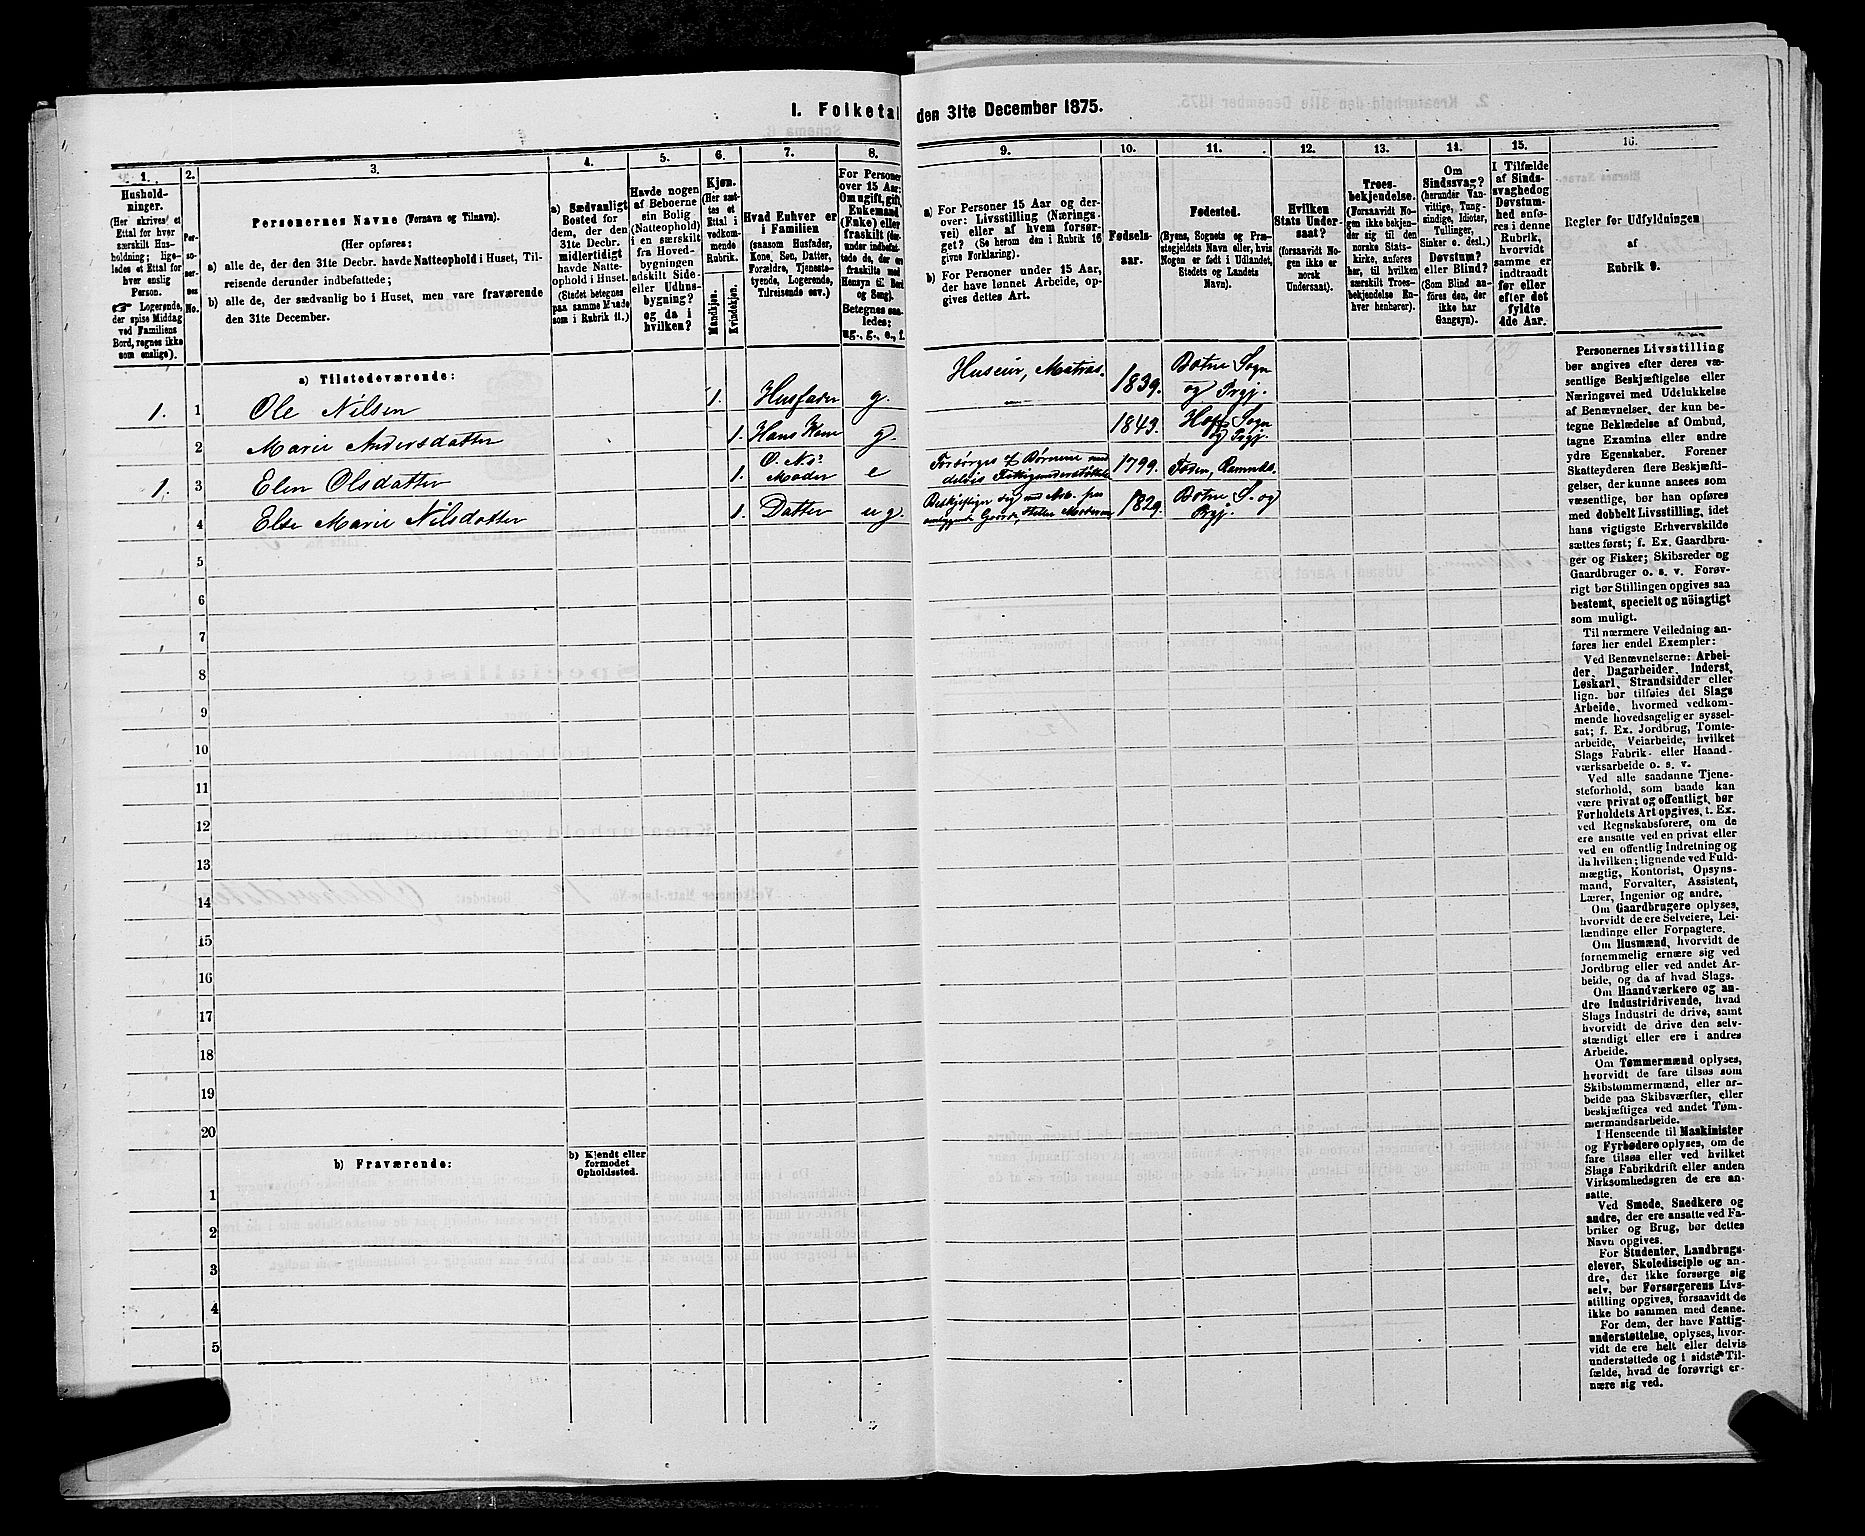 I. Folketal den 31te December 1875.
1.
Hushold-
ninger.
(Her skrives et
Ettal for hver
særskilt Hus-
holdning; lige-
ledes et Ettal for
hver enslig
Person.
☞ Logerende,
der spise Middag
ved Familiens
Bord, regnes ikke
som enslige).
2.
Per-
so-
ner-
nes
No.
3.
Personernes Navne (Fornavn og Tilnavn).
(Her opføres:
a) alle de, der den 31te Decbr. havde Natteophold i Huset, Til-
reisende derunder indbefattede;
b) alle de, der sædvanlig bo i Huset, men vare fraværende
den 31te December.
4.
a) Sædvanligt
Bosted for
dem, der den
31te Decbr.
midlertidigt
havde Natte-
ophold i Huset.
(Stedet betegnes
paa samme Maade
som i Rubrik 11.)
5.
Havde nogen
af Beboerne
sin Bolig
(Natteophold)
i en særskilt
fra Hoved-
bygningen
adskilt Side-
eller Udhus-
bygning?
og da i
hvilken?
6.
Kjøn.
(Her sæt-
tes et
Ettal i
vedkom-
mende
Rubrik.
Mandkjøn.
Kvindekjøn.
7.
Hvad Enhver er
i Familien
(saasom Husfader,
Kone, Søn, Datter,
Forældre, Tjeneste-
tyende, Logerende,
Tilreisende osv.)
8.
For Personer
over 15 Aar:
Om ugift, gift,
Enkemand
(Enke) eller
fraskilt (der-
under indbefat-
tede de, der ere
fraskilte med
Hensyn til Bord
og Seng).
Betegnes saa-
ledes:
ug., g., e., f.
9.
a) For Personer 15 Aar og der-
over: Livsstilling (Nærings-
vei) eller af hvem forsør-
get? (Se herom den i Rubrik 16
givne Forklaring).
b) For Personer under 15 Aar,
der have lønnet Arbeide, op-
gives dettes Art.
10.
Fødsels-
aar.
11.
Fødested.
(Byens, Sognets og Præ-
stegjeldets Navn eller, hvis
Nogen er født i Udlandet,
Stedets og Landets
Navn).
12.
Hvilken
Stats Under-
saat?
(forsaavidt No-
gen ikke er
norsk
Undersaat).
13.
Troes-
bekjendelse.
(Forsaavidt No-
gen ikke bekjen-
der sig til den
norske Stats-
kirke, anføres
her, til hvilken
særskilt Troes-
bekjendelse En-
hver henhører).
14.
Om
Sindssvag?
(herunder Van-
vittige, Tung-
sindige, Idioter,
Tullinger,
Sinker o. desl.)
Døvstum?
eller Blind?
(Som Blind an-
føres den, der
ikke har
Gangsyn).
15.
I Tilfælde
af Sinds-
svaghed og
Døvstum-
hed anfø-
res i denne
Rubrik,
hvorvidt
samme er
indtraadt
før eller
efter det
fyldte
4de Aar.
16.
Regler for Udfyldningen
af
Rubrik 9.
a) Tilstedeværende:
1. 1 Ole Nilsen 1. Husfader g. Huseier, Matros. 1839. Botne Sogn og Prgj.
2 Marie Andersdatter 1. Hans Kone g. 1843. Hoff Sogn og Prgj.
1. 3 Elen Olsdatter 1. O. Ns' Moder e Forsørges af Børnene med delvis Fattigunderstøttelse 1799.
4 Else Marie Nilsdatter 1. Datter ug Beskjeftiger sig med Arb. paa omliggende Gaarde, steller Moderen 1829. Botne S. og Prgj.
5
6
7
8
9
10
11
12
13
14
15
16
17
18
19
20
b) Fraværende:
b) Kjendt eller
formodet
Opholdssted.
1
2
3
4
5
Personernes Livsstilling
bør angives efter deres væ-
sentlige Beskjæftigelse eller
Næringsvei med Udelukkelse
af Benævnelser, der kun be-
tegne Beklædelse af Ombud,
tagne Examina eller andre
ydre Egenskaber. Forener
Skatteyderen flere Beskjæfti-
gelser, der kunne ansees som
væsentlige, bør han opføres
med dobbelt Livsstilling, idet
hans vigtigste Erhvervskilde
sættes først; f. Ex. Gaardbru-
ger og Fisker; Skibsreder og
Gaardbruger o. s. v. Forøv-
rigt bør Stillingen opgives saa
bestemt, specielt og nøiagtigt
som muligt.
Til nærmere Veiledning an-
føres her endel Exempler:
Ved Benævnelserne: Arbei-
der, Dagarbeider, Inderst,
Løskarl, Strandsidder eller
lign. bør tilføies det Slags
Arbeide, hvormed vedkom-
mende hovedsagelig er syssel-
sat; f. Ex. Jordbrug, Tomte-
arbeide, Veiarbeide, hvilket
Slags Fabrik- eller Haand-
værksarbeide o. s. v.
Ved alle saadanne Tjene-
steforhold, som baade kan
være privat og offentligt, bør
Forholdets Art opgives, f. Ex.
ved Regnskabsførere, om de
ere ansatte ved en privat eller
ved en offentlig Indretning og
da hvilken; lignende ved Fuld-
mægtig, Kontorist, Opsyns-
mand, Forvalter, Assistent,
Lærer, Ingeniør og andre.
Om Gaardbrugere oplyses,
hvorvidt de ere Selveiere, Lei-
lændinge eller Forpagtere.
Om Husmænd, hvorvidt de
fornemmelig ernære sig ved
Jordbrug eller ved andet Ar-
beide, og da af hvad Slags.
Om Haandværkere og an-
dre Industridrivende, hvad
Slags Industri de drive, samt
hvorvidt de drive den selv-
stændigt eller ere i andres
Arbeide.
Om Tømmermænd oplyses,
hvorvidt de fare tilsøs som
Skibstømmermænd, eller ar-
beide paa Skibsværfter, eller
beskjæftiges ved andet Tøm-
mermandsarbeide.
I Henseende til Maskinister
og Fyrbødere oplyses, om de
fare tilsøs eller ved hvilket
Slags Fabrikdrift eller anden
Virksomhedsgren de ere an-
satte.
Ved Smede, Snedkere og
andre, der ere ansatte ved Fa-
briker og Brug, bør dettes
Navn opgives.
For Studenter, Landbrugs-
elever, Skoledisciple og an-
dre, der ikke forsørge sig
selv, bør Forsørgerens Livs-
stilling opgives, forsaavidt de
ikke bo sammen med denne.
For dem, der have Fattig-
understøttelse, oplyses, hvor-
vidt de ere helt eller delvis
understøttede og i sidste Til-
fælde, hvad de forøvrigt er-
nære sig ved.